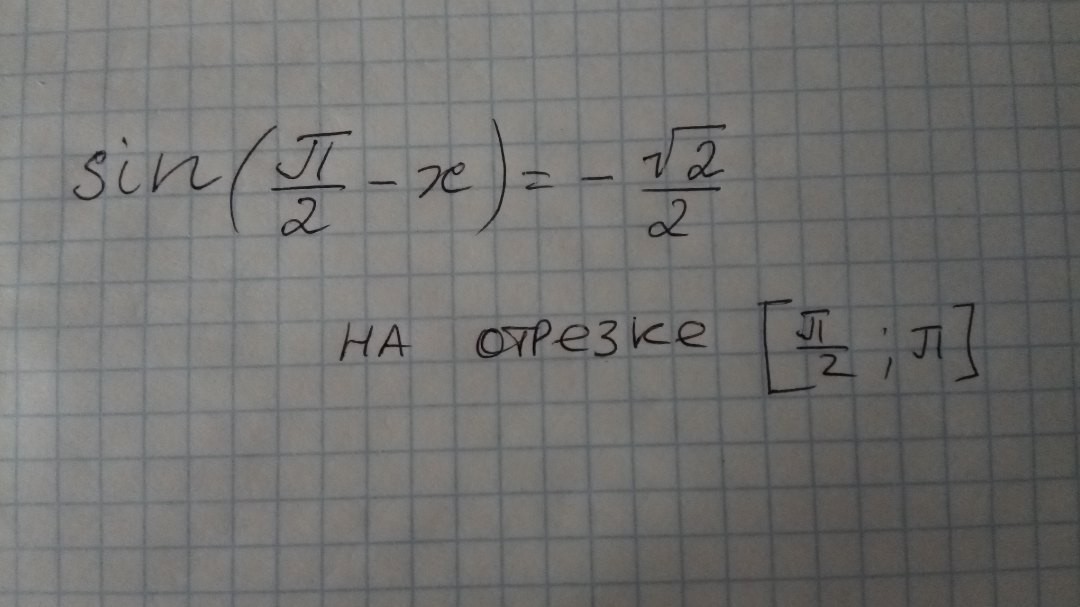 sin(π/2 - x) = - √2/2
на отрезке [π/2 ; π]